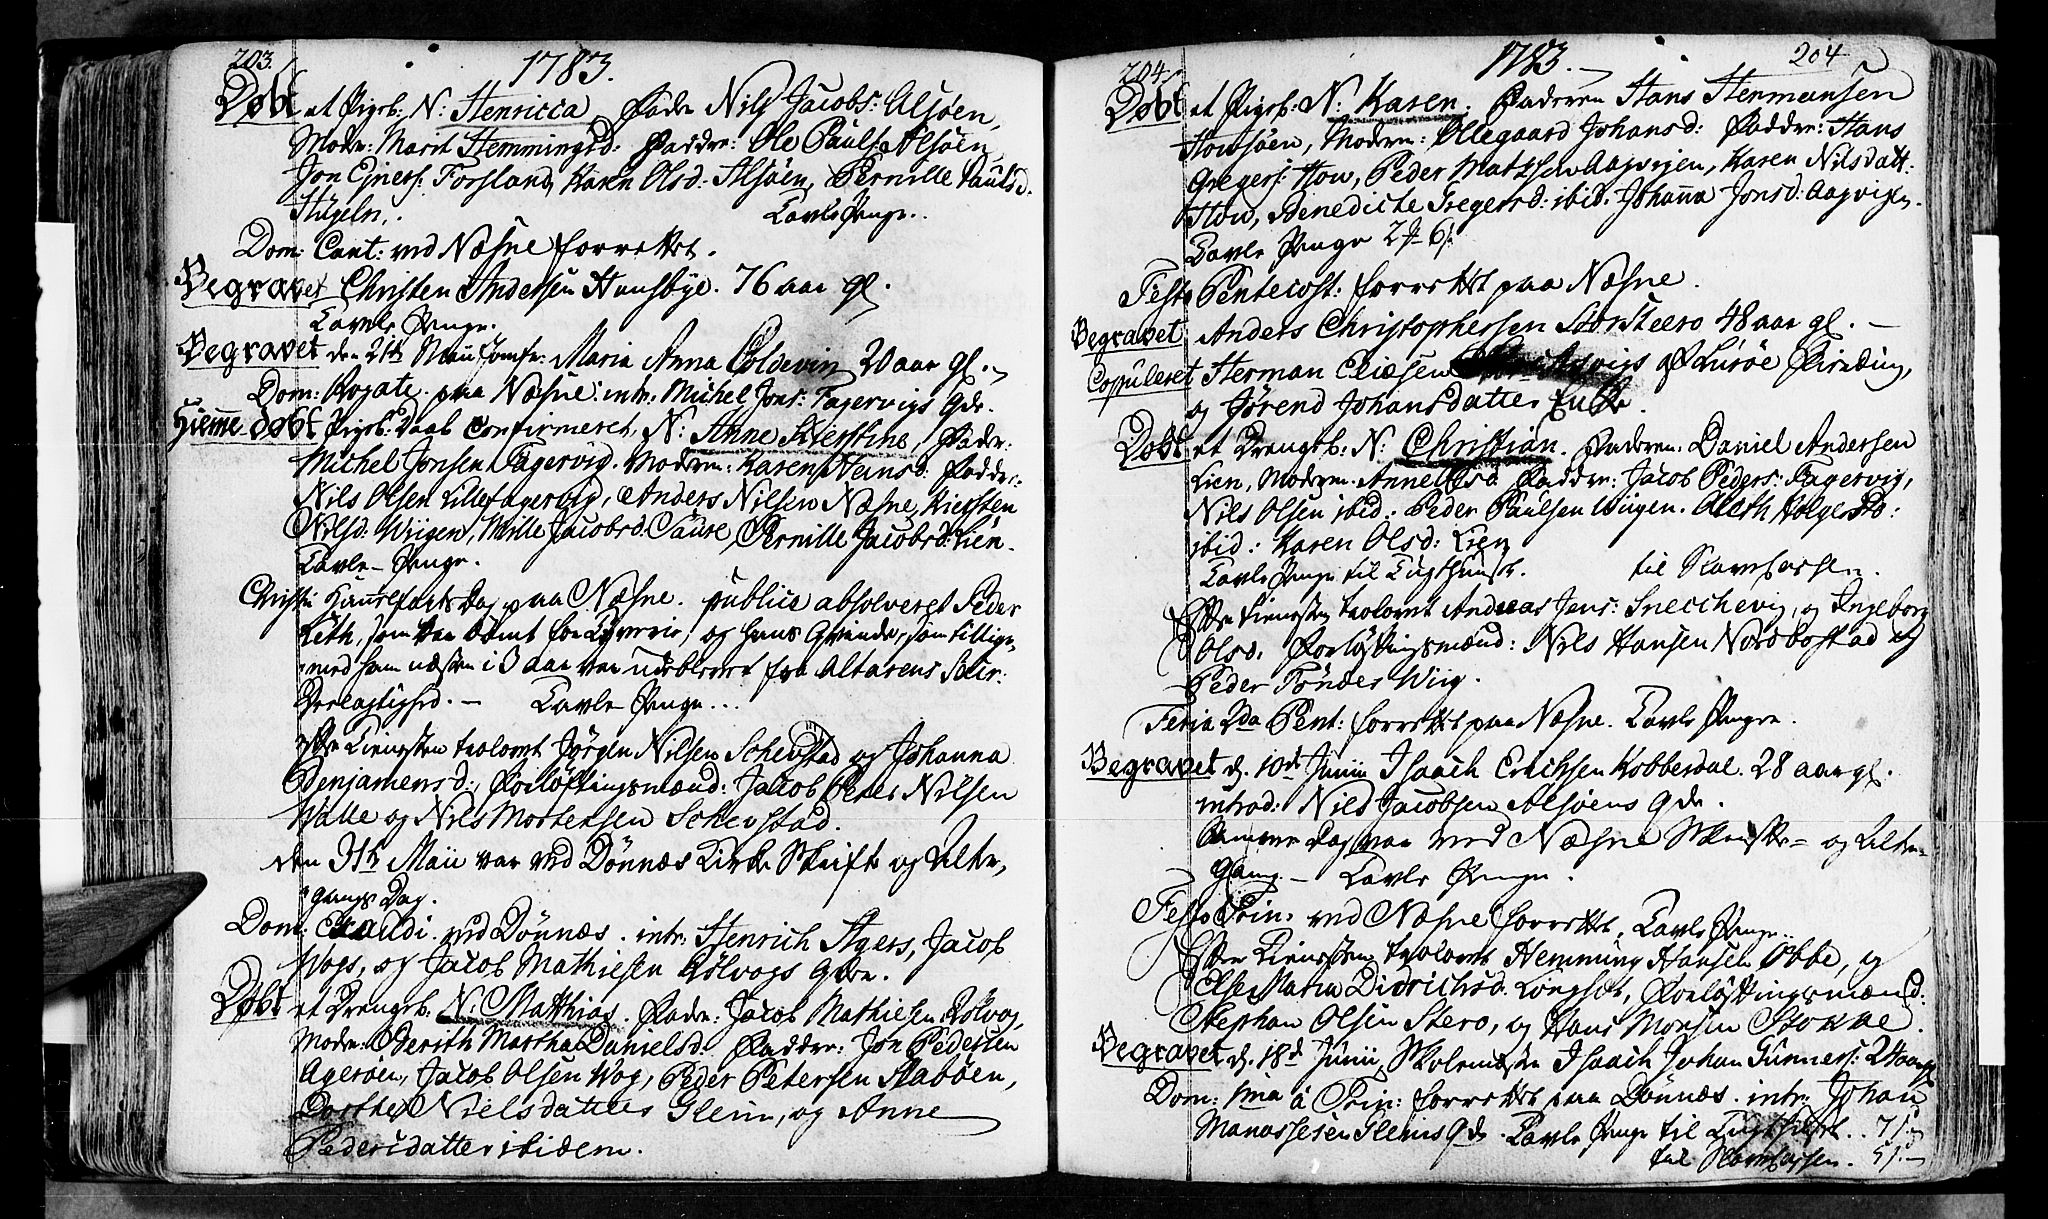 203.
1783.
Døbt et Pigeb: N: Henricca, Fader Nils Jacobs: Alsøen,
Moder: Maret Hemmingsd: Faddre: Ole Pauls: Alsøen
Jon Ejners: Forsland, Karen Olsd: Alsøen, Pernille Paulsd.
Hügeln. Tavle Penge..
Dom: Cant: ved Næsne forrettet.
Begravet Christen Andersen Huusbye. 76 aar gl.
Tavle Penge.
Begravet den 21th Maii Jomfr: Maria Anna Coldevin 20 aar gl.
Dom: Rogate paa Næsne: intr: Michel Jons: Fagervigs Qde.
Hiemme døbt Pigeb: Daab confirmeret, N: Anne Kierstine, Fader:
Michel Jonsen Fagervig. Moderen: Karen Hansd: Faddre:
Nils Olsen Lillefagervig, Anders Nilsen Næsne, Kiersten
Nilsd: Wiigen, Mille Jacobsd: Cause, Pernille Jacobsd: Lien.
Tavle-Penge.
Christi Himmelfarts Dag paa Næsne. publice absolveret Peder
Leth, som var dømt for Tyverie, og hans Qvinde, som tillige
med ham næsten i 3 aar var udeblevet fra Altarens Sacr:
Deelagtighed. — Tavle Penge...
Efter Tienesten trolovet Jørgen Nilsen Schevstad og Johanna
Benjamensd:, Forløftningsmænd: Jacob Peter Nilsen
Walle og Nils Mortensen Schevstad.
den 31th Maii var ved Dønnæs Kirke Skrifte og Alter,
gangs Dag.
Dom: Exaudi ved Dönnæs. intr: Henrich Agers, Jacob
Wogs, og Jacob Mathiesen Rölvogs Qder.
Døbt et Drengeb: N: Matthias. Fader: Jacob Mathiesen Rölvog,
Moder: Bereth Martha Danielsd: Faddre: Jon Pedersen
Agerøen, Jacob Olsen Wog, Peder Petersen Stabøen,
Dorthe Nielsdatter Glein, og Anne
Pedersdatter ibidem.
204.
1783.
204
Døbt et Pigeb: N: Karen. Faderen Hans Hermansen
Houssøen, Moderen: Ollegaard Johansd: Faddre: Hans
Gregers: Hou, Peder Matsen Aagvigen, Karen Nilsdatt:
Hou, Benedicte Gregersd: ibid. Johanna Jonsd: Aagvigen.
Tavle Penge 2 6
Festo Pentecost: forrettet paa Næsne.
Begravet Anders Christophersen Stor Steero 48 aar gl. —
Copuleret Herman af Lurøe Fierding,
og Jørend Johansdatter Enke.
Døbt et Drengeb: N: Christian. Faderen: Daniel Andersen
Lien, Moderen: Anne Faddre: Jacob Peders: Fagervig,
Nils Olsen ibid: Peder Paulsen Wiigen. Aleth Holgersd:
ibid: Karen Olsd: Lien
Tavle Penge til Tugthuuset. til Skovkassen.
Efter Tienesten trolovet Andreas Jens: Sneechevig, og Ingeborg
Olsd. Forløftningsmænd: Nils Hansen Nordbostad og
Peder Tönder Wiig.
Feria 2da Pent: forrettet paa Næsne. Tavle Penge.
Begravet d. 10de Junii Isaach Erichsen Kobberdal. 28 aar gl.
introd: Nils Jacobsen Alsøens Qde.
Samme Dag var ved Næsne Skrifte- og Alter-
gang. — Tavle Penge.
Festo Trin: ved Næsne forrettet. Tavle Penge..
Efter Tienesten trolovet Hemming Hansen Obbe, og
Else Maria Didrichsd. Longset, Forløftningsmænd:
Stephan Olsen Stero, og Hans Monsen Stokke.
Begravet d. 18de Junii, Skolemester Isaach Johan Gunners:
Dom: 1ma à Trin: forrettet paa Dönnæs. intr: Johan
Manassesen Gleins Qde. Tavle Penge til Tugthuuset.. 7 —
til Skovkassen. 5 —